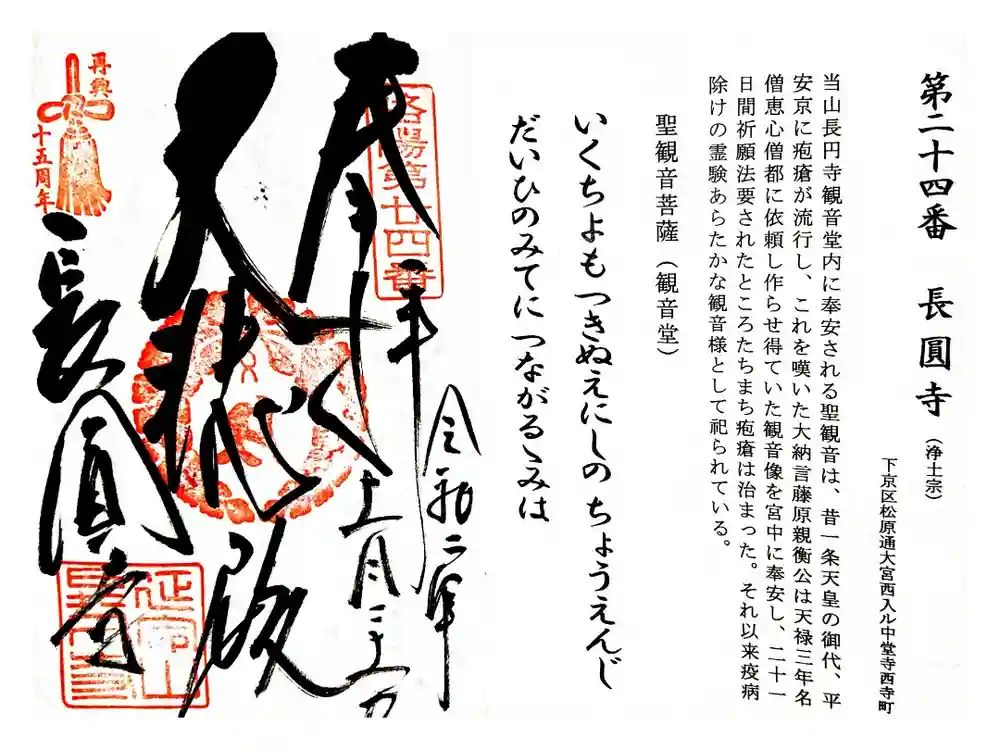 第二十四番 長圓寺 (浄土宗)
下京区松原通大宮西入ル中堂寺西寺町
当山長円寺観音堂内に奉安される聖観音は、昔一条天皇の御代、平
安京に疱瘡が流行し、これを嘆いた大納言藤原親衡公は天禄三年名
僧恵心僧都に依頼し作らせ得ていた観音像を宮中に奉安し、二十一
日間祈願法要されたところたちまち疱瘡は治まった。それ以来疫病
除けの霊験あらたかな観音様として祀られている。
聖観音菩薩(観音堂)
いくちよも つきぬえにしの ちょうえんじ
だいひのみてに つながるゝみは
洛陽第廿四番
奉拝
令和二年
十一月二十一日
大悲殿
長圓寺
再興
十五周年